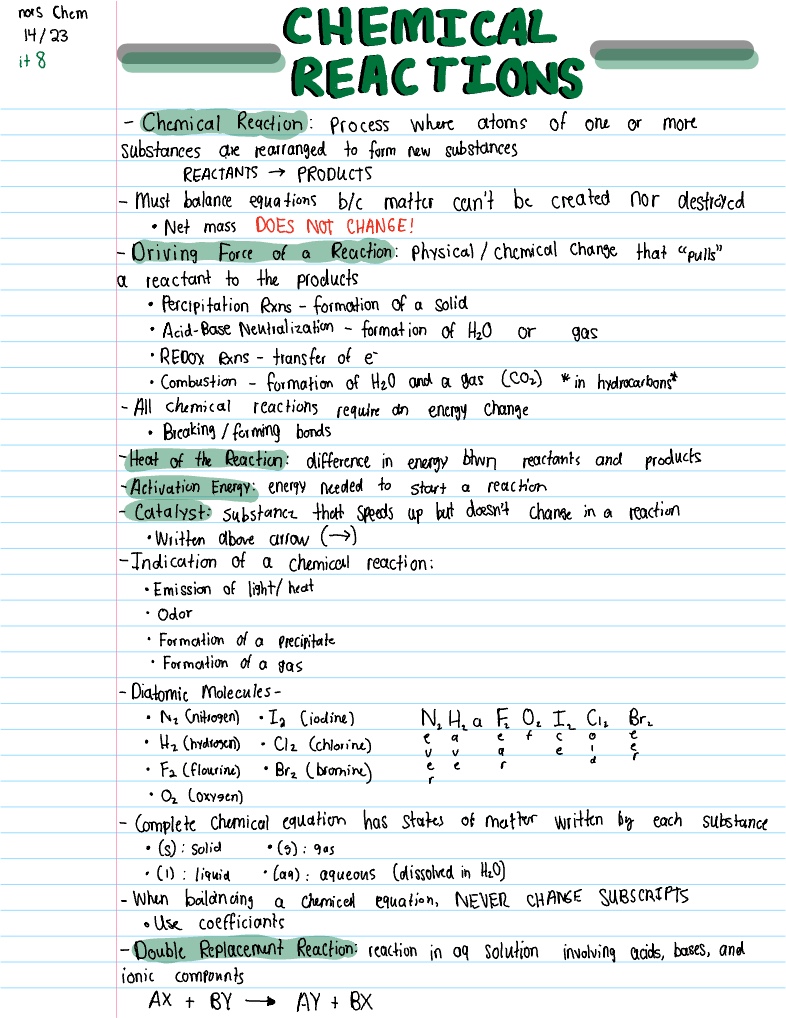 nors Chem
14/23
it 8
CHEMICAL
REACTIONS
- Chemical Reaction: Process where atoms of one or more
substances are rearranged to form new substances
REACTANTS → PRODUCTS
- Must balance equations b/c matter can't be created nor destroyed
• Net mass DOES NOT CHANGE!
- Driving Force of a Reaction: Physical / chemical change that "pulls"
a reactant to the products
• Percipitation Rxns - formation of a solid
• Acid-Base Neutralization - formation of H₂O or gas
• REDOX Rxns - transfer of e⁻
• Combustion - formation of H₂O and a gas (CO₂) *in hydrocarbons*
- All chemical reactions require an energy change
• Breaking / forming bonds
- Heat of the Reaction: difference in energy btwn reactants and products
- Activation Energy: energy needed to start a reaction
- Catalyst: substance that speeds up but doesn't change in a reaction
• Written above arrow (→)
- Indication of a chemical reaction:
• Emission of light/heat
• Odor
• Formation of a precipitate
• Formation of a gas
- Diatomic Molecules -
• N₂ (nitrogen) • I₂ (iodine)
• H₂ (hydrogen) • Cl₂ (chlorine)
• F₂ (flourine) • Br₂ (bromine)
• O₂ (oxygen)
N₂ H₂ a F₂ O₂ I₂ Cl₂ Br₂
e a e f c o e
v v a e l e
e e r d r
r
- Complete chemical equation has states of matter written by each substance
• (s): solid • (g): gas
• (l): liquid • (aq): aqueous (dissolved in H₂O)
- When baldncing a chemical equation, NEVER CHANGE SUBSCRIPTS
• Use coefficiants
- Double Replacement Reaction: reaction in aq solution involving acids, bases, and
ionic compounts
AX + BY → AY + BX